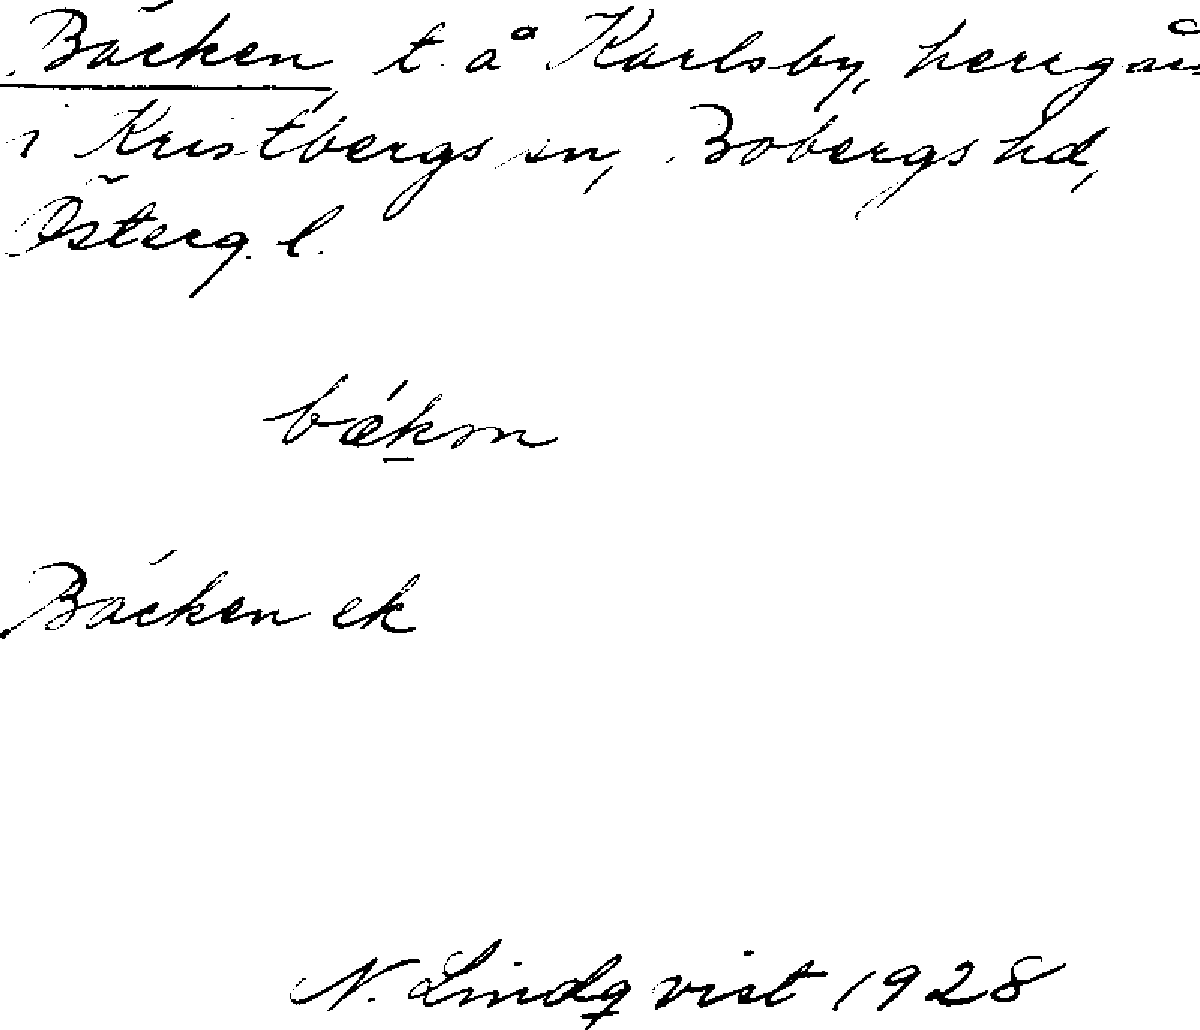 Bäcken, t. å Karlsby, herrgård
i Kristbergs sn, Bobergs hd,
Österg. l.
bǽkɘn
Bäcken ek
N. Lindqvist 1928